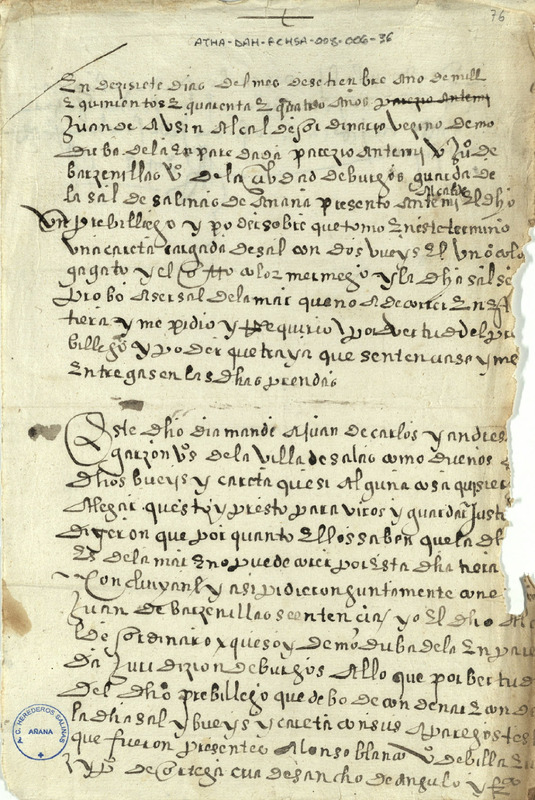 76
ATHA-DAH-FCHSA-008-006-36
En dezisiete dias del mes de setienbre año de mill
E quinientos E quarenta E quatro años parezio Antemi
Juan de Ausin Alcalde hordinario vezino de mo
duba dela Enparedada parezio Antemi Ju° de
barzenillas v° de la Cibdad de burgos guarda de
la sal de salinas de Anana presento Antemi El dho
Alcalde
Un prebillegio y poder sobre que tomo En este termino
una careta cargada de sal con dos bueys El uno color
y El otto color mermejo y la dha sal se
probo A ser sal dela mar que no A de correr En
tiera y me pidio y Requirio por vertud del pre
billegio y poder que traya que sentenciase y me
Entregasen las dhas prendas
Este dho dia mande A juan de carlos y andres
garzon v°s de la villa de salas como duenos
dhos bueys y careta que si Alguna cosa quisier
Alegar questoy presto para
 y guardar Justi
dixeron que por quanto Ellos saben que la
Es dela mar E no puede corer por Esta dha tiera
Concluyan y asi pidieron juntamente con
Juan de barzenillas sentencia y yo El dho Alc
lde hordinario que soy de moduba dela Enpare
da Juridizion de burgos Allo que por bertud
del dho prebillegio que debo de condenar
la dha sal y bueys y careta con sus Aparejos
que fueron presentes Alonso blanco v° de billa
y p° de Ortega de sancho de angulo y
A.C. HEREDEROS SALINAS
AÑANA